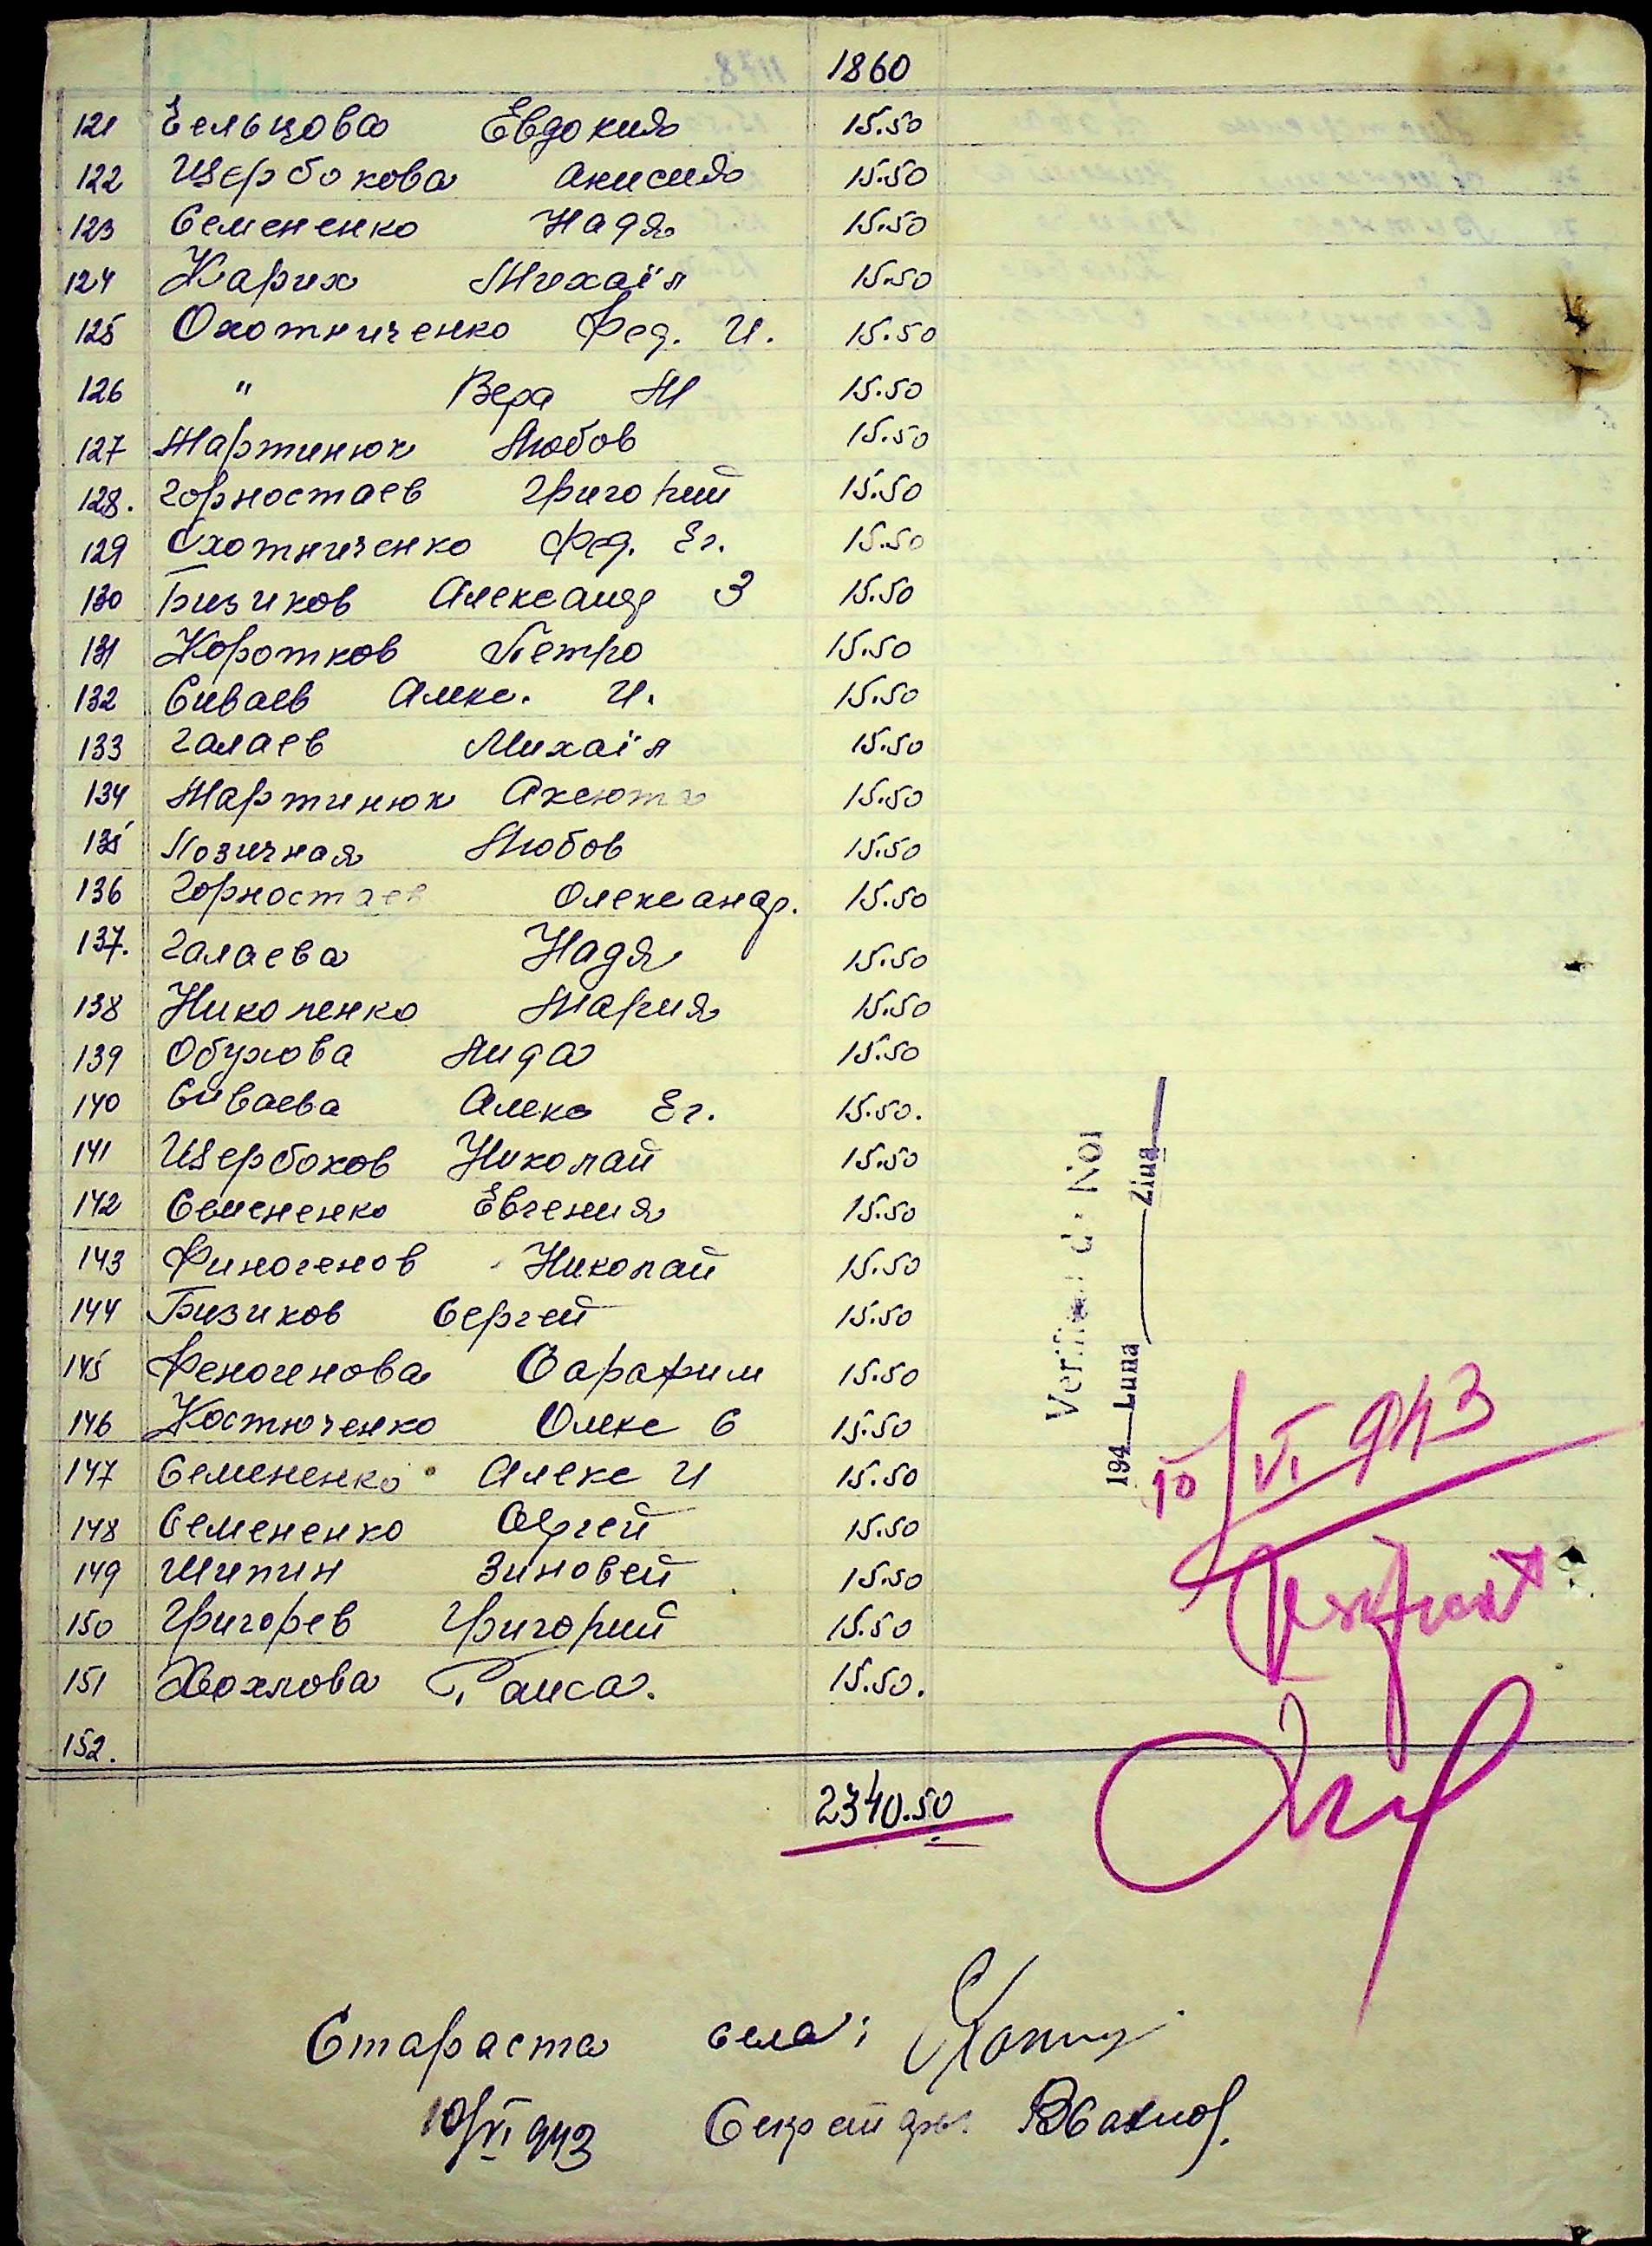 1860
121 Бельцова Евдокия 15.50
122 Щербокова Анисия 15.50
123 Семененко Надя 15.50
124 Карих Михаїл 15.50
125 Охотниченко Фед. И. 15.50
126 " Вера М 15.50
127 Мартинюк Любов 15.50
128. Горностаев Григорий 15.50
129 Охотниченко Фед. Ег. 15.50
130 Бизиков Александр З 15.50
131 Коротков Петро 15.50
132 Сиваев Алекс. И. 15.50
133 Галаев Михаїл 15.50
134 Мартинюк Аксюта 15.50
135 Позичная Любов 15.50
136 Горностаев Олександр. 15.50
137. Галаева Надя 15.50
138 Николенко Мария 15.50
139 Обухова Лида 15.50
140 Сиваева Алекс Ег. 15.50.
141 Щербоков Николай 15.50
142 Семененко Евгения 15.50
143 Финогенов Николай 15.50
144 Бизиков Сергей 15.50
145 Феногенова Сарафим 15.50
146 Костюченко Олекс С 15.50
147 Семененко Алекс И 15.50
148 Семененко Сергей 15.50
149 Шипин Зиновей 15.50
150 Григорев Григорий 15.50
151 Хохлова Раиса. 15.50.
152.
2340.50
Verificat de Noi
194 Luna Ziua
10/VI 943
Стараста села:
10/VI 943 Секретарь